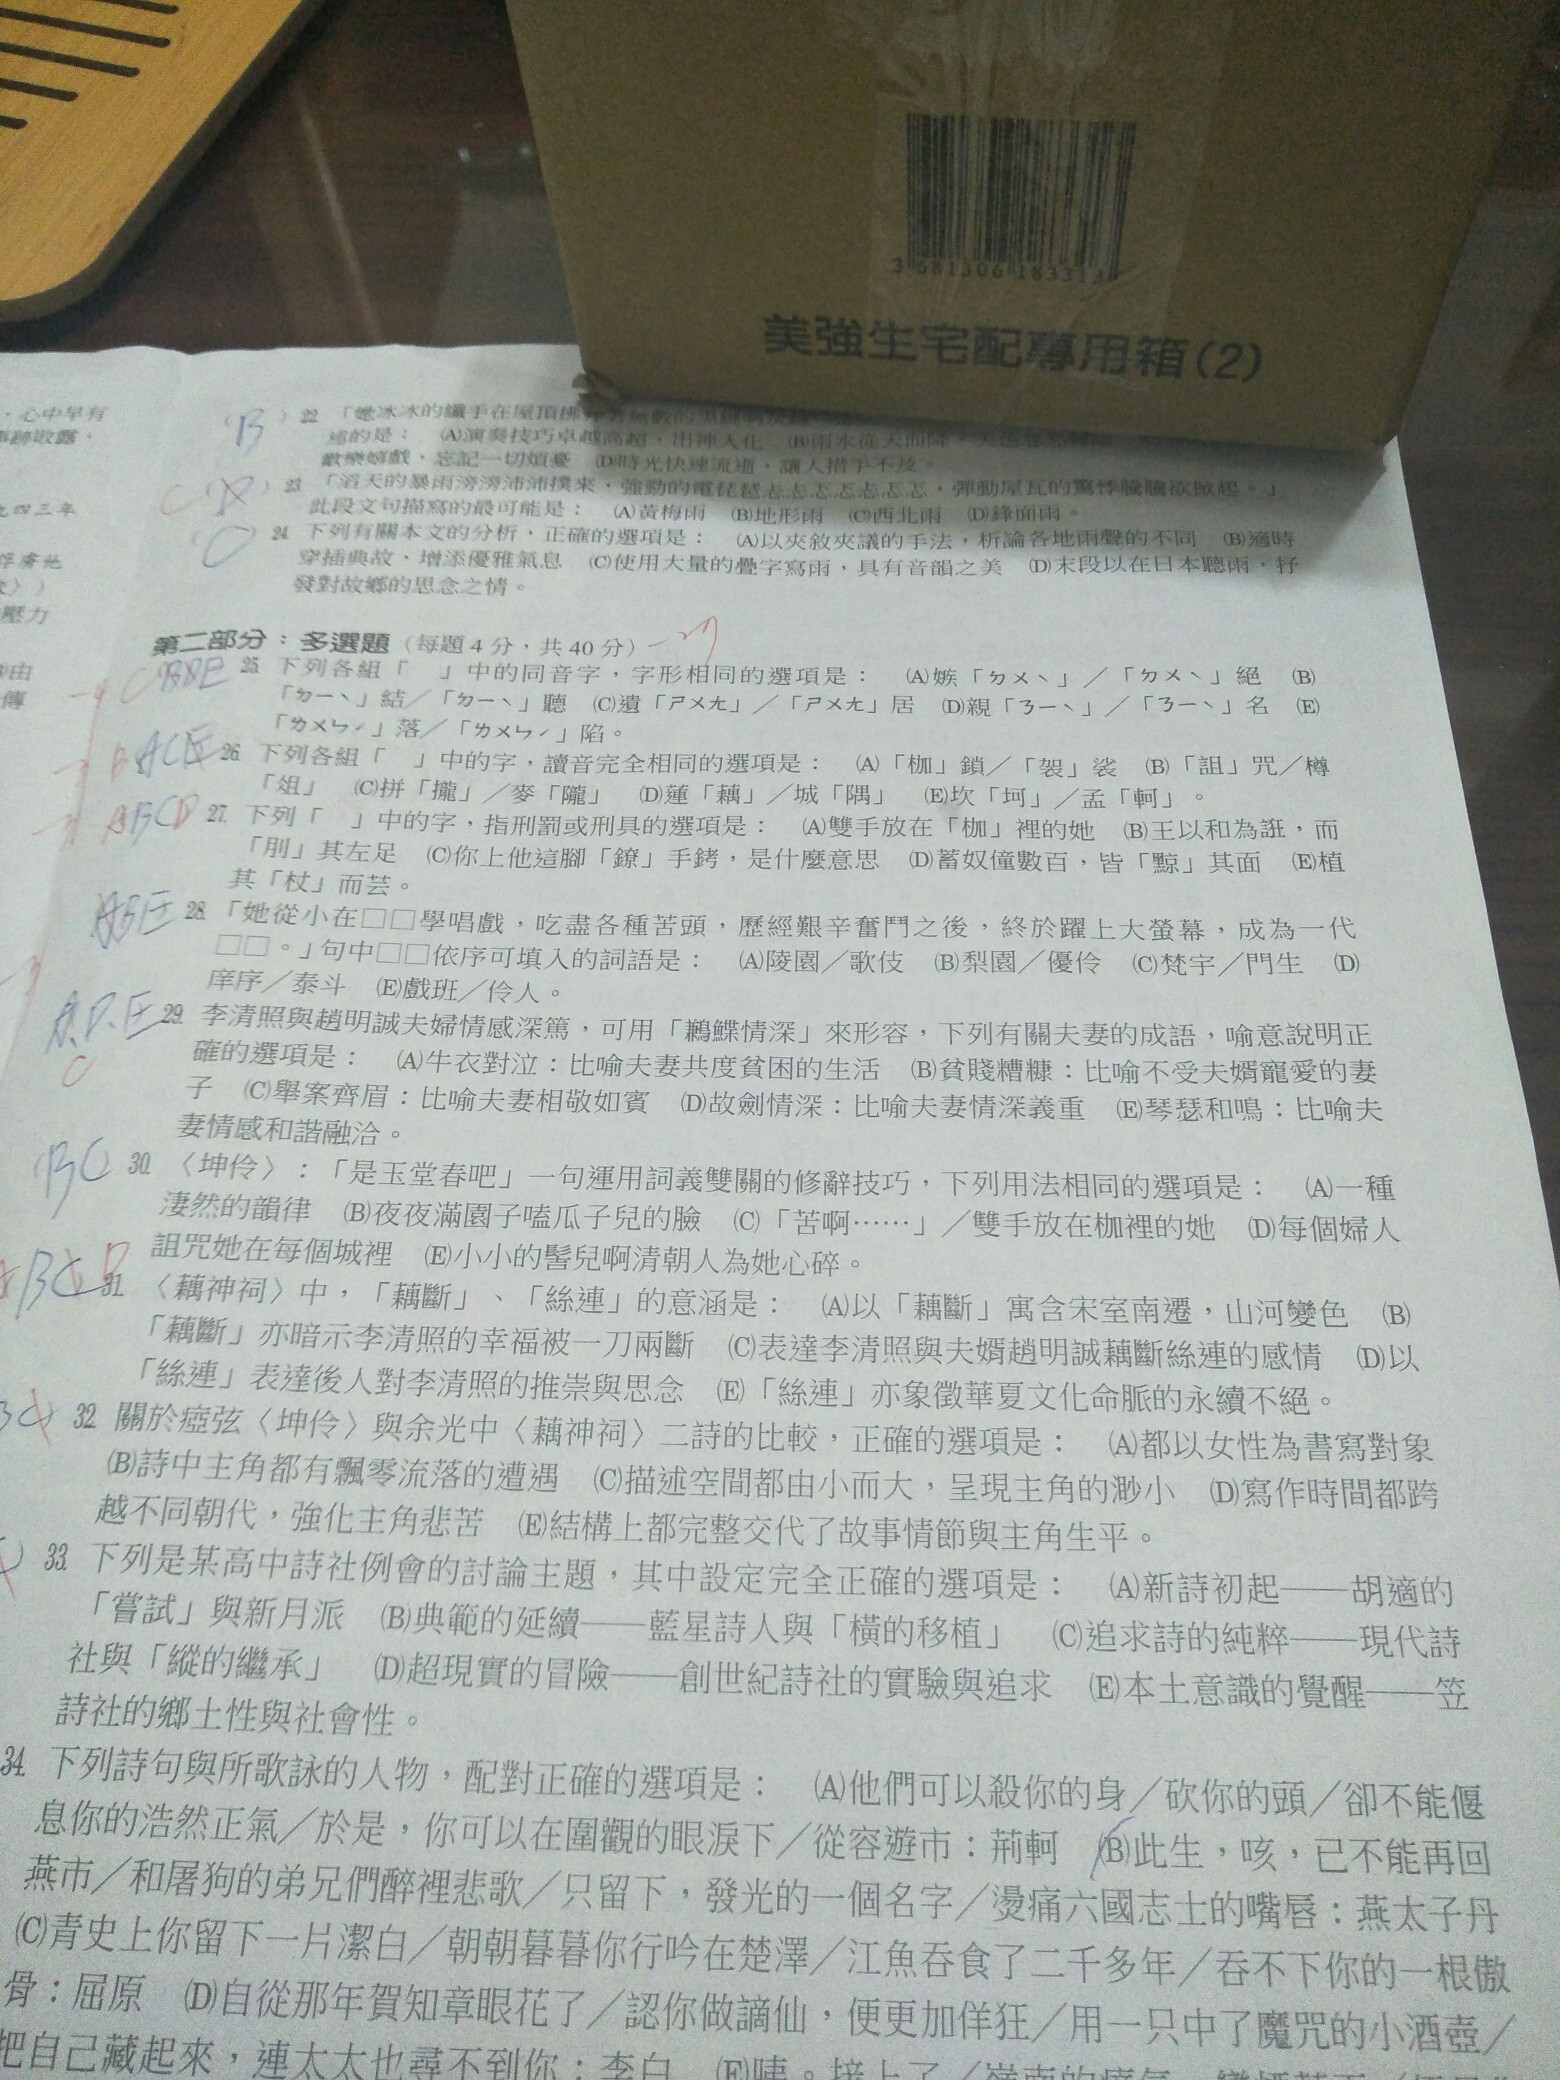 3 681306 18331
美強生宅配專用箱(2)
，心中早有
九四三年
壓力
(B) 22 「她冰冰的纖手在屋頂拂
述的是： (A)演奏技巧卓越高超，出神入化 (B)雨水從天而降，天
歡樂嬉戲，忘記一切煩憂 (D)時光快速流逝，讓人措手不及。
C 23 「滔天的暴雨滂滂沛沛撲來，強勁的電琵琶忐忐忑忑忐忐忑，彈動屋瓦的驚悸騰騰欲掀起。」
此段文句描寫的最可能是： (A)黃梅雨 (B)地形雨 (C)西北雨 (D)鋒面雨。
24 下列有關本文的分析，正確的選項是： (A)以夾敘夾議的手法，析論各地雨聲的不同 (B)適時
穿插典故，增添優雅氣息 (C)使用大量的疊字寫雨，具有音韻之美 (D)末段以在日本聽雨，抒
發對故鄉的思念之情。
第二部分：多選題（每題 4 分，共 40 分）
25 下列各組「 」中的同音字，字形相同的選項是： (A)嫉「ㄉㄨˋ」／「ㄉㄨˋ」絕 (B)
「ㄉㄧˋ」結／「ㄉㄧˋ」聽 (C)遺「ㄕㄨㄤ」／「ㄕㄨㄤ」居 (D)親「ㄋㄧˋ」／「ㄋㄧˋ」名 (E)
「ㄌㄨㄣˊ」落／「ㄌㄨㄣˊ」陷。
ACE 26 下列各組「 」中的字，讀音完全相同的選項是： (A)「枷」鎖／「袈」裟 (B)「詛」咒／樽
「俎」 (C)拼「攏」／麥「隴」 (D)蓮「藕」／城「隅」 (E)坎「坷」／孟「軻」。
ABCD 27 下列「 」中的字，指刑罰或刑具的選項是： (A)雙手放在「枷」裡的她 (B)王以和為誑，而
「刖」其左足 (C)你上他這腳「鐐」手銬，是什麼意思 (D)蓄奴僮數百，皆「黥」其面 (E)植
其「杖」而芸。
28 「她從小在□□學唱戲，吃盡各種苦頭，歷經艱辛奮鬥之後，終於躍上大螢幕，成為一代
□□。」句中□□依序可填入的詞語是： (A)陵園／歌伎 (B)梨園／優伶 (C)梵宇／門生 (D)
庠序／泰斗 (E)戲班／伶人。
A.D.E 29 李清照與趙明誠夫婦情感深篤，可用「鶼鰈情深」來形容，下列有關夫妻的成語，喻意說明正
C 確的選項是： (A)牛衣對泣：比喻夫妻共度貧困的生活 (B)貧賤糟糠：比喻不受夫婿寵愛的妻
子 (C)舉案齊眉：比喻夫妻相敬如賓 (D)故劍情深：比喻夫妻情深義重 (E)琴瑟和鳴：比喻夫
妻情感和諧融洽。
BC 30 〈坤伶〉：「是玉堂春吧」一句運用詞義雙關的修辭技巧，下列用法相同的選項是： (A)一種
淒然的韻律 (B)夜夜滿園子嗑瓜子兒的臉 (C)「苦啊……」／雙手放在枷裡的她 (D)每個婦人
詛咒她在每個城裡 (E)小小的髻兒啊清朝人為她心碎。
BC D 31 〈藕神祠〉中，「藕斷」、「絲連」的意涵是： (A)以「藕斷」寓含宋室南遷，山河變色 (B)
「藕斷」亦暗示李清照的幸福被一刀兩斷 (C)表達李清照與夫婿趙明誠藕斷絲連的感情 (D)以
「絲連」表達後人對李清照的推崇與思念 (E)「絲連」亦象徵華夏文化命脈的永續不絕。
32 關於瘂弦〈坤伶〉與余光中〈藕神祠〉二詩的比較，正確的選項是： (A)都以女性為書寫對象
(B)詩中主角都有飄零流落的遭遇 (C)描述空間都由小而大，呈現主角的渺小 (D)寫作時間都跨
越不同朝代，強化主角悲苦 (E)結構上都完整交代了故事情節與主角生平。
33 下列是某高中詩社例會的討論主題，其中設定完全正確的選項是： (A)新詩初起——胡適的
「嘗試」與新月派 (B)典範的延續——藍星詩人與「橫的移植」 (C)追求詩的純粹——現代詩
社與「縱的繼承」 (D)超現實的冒險——創世紀詩社的實驗與追求 (E)本土意識的覺醒——笠
詩社的鄉土性與社會性。
34. 下列詩句與所歌詠的人物，配對正確的選項是： (A)他們可以殺你的身／砍你的頭／卻不能偃
息你的浩然正氣／於是，你可以在圍觀的眼淚下／從容遊市：荊軻 (B)此生，咳，已不能再回
燕市／和屠狗的弟兄們醉裡悲歌／只留下，發光的一個名字／燙痛六國志士的嘴唇：燕太子丹
(C)青史上你留下一片潔白／朝朝暮暮你行吟在楚澤／江魚吞食了二千多年／吞不下你的一根傲
骨：屈原 (D)自從那年賀知章眼花了／認你做謫仙，便更加佯狂／用一只中了魔咒的小酒壺／
把自己藏起來，連太太也尋不到你：李白 (E)咦。接上了／嶺南的瘴氣，